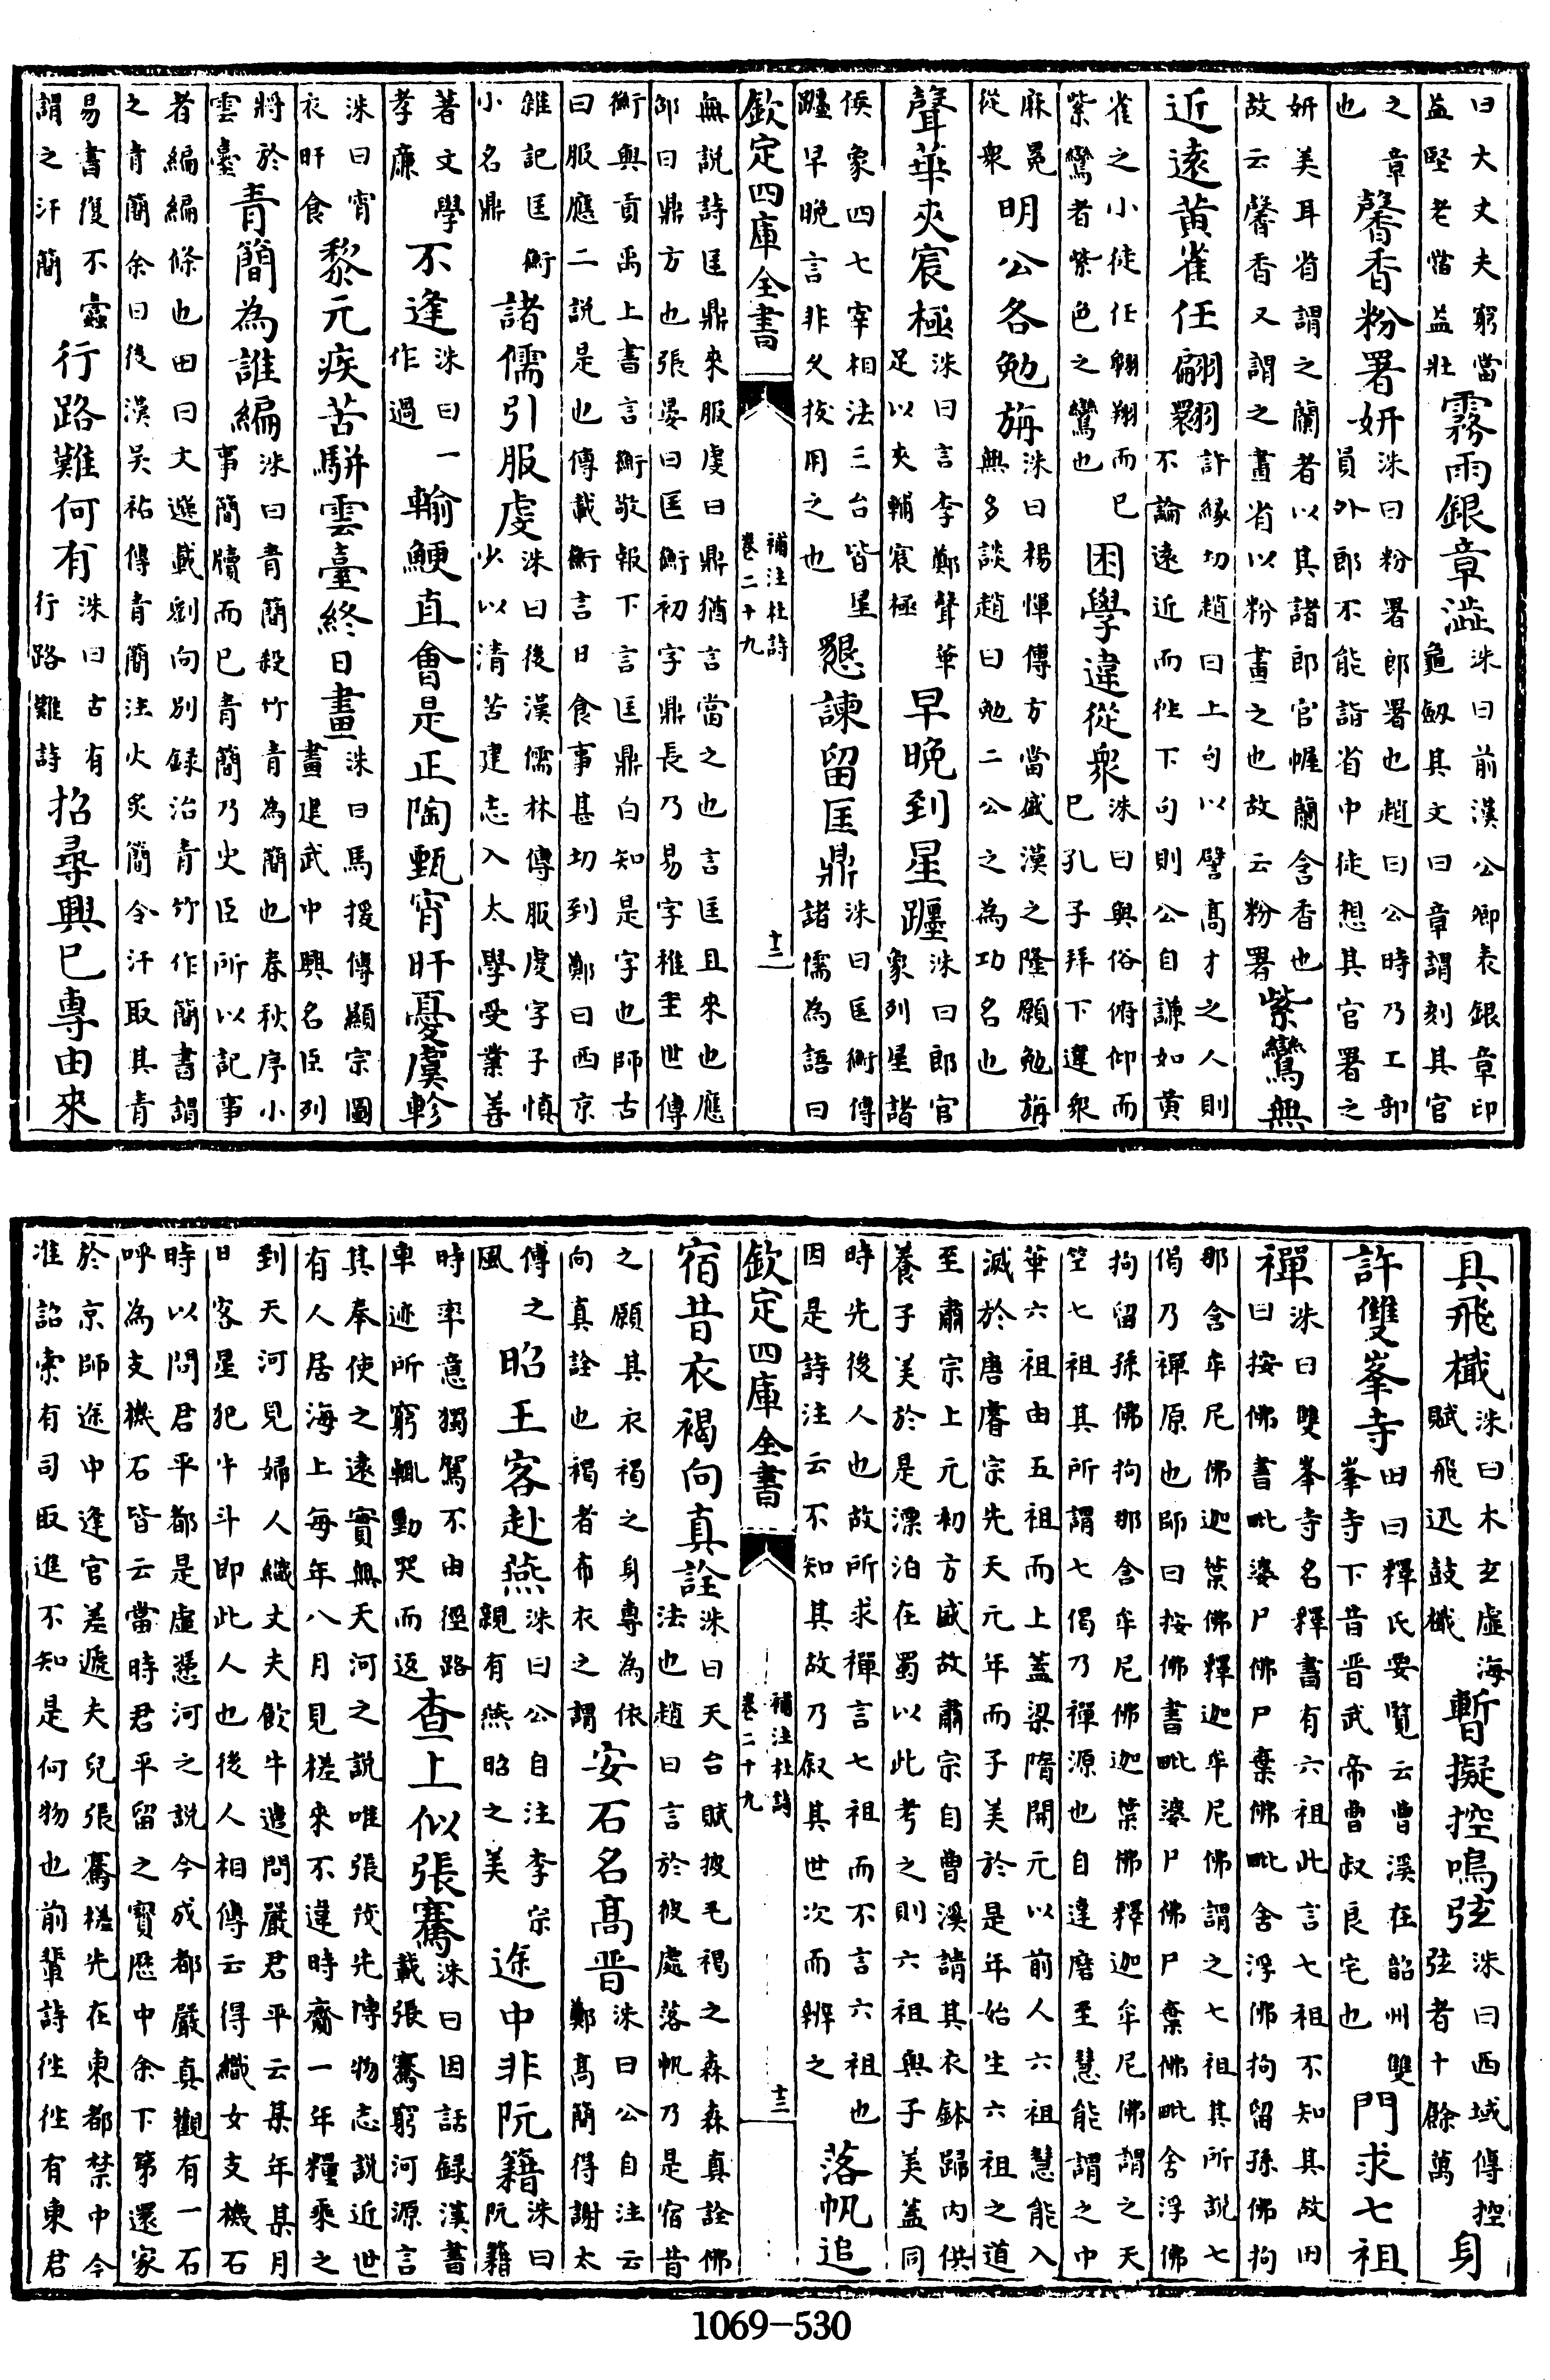 曰大丈夫窮當益堅老當益壯霧雨銀章澁洙曰前漢公卿表銀章印龜劔其文曰章謂刻其官
之章也馨香粉署妍洙曰粉署郎署也趙曰公時乃工部員外郎不能詣省中徒想其官署之
妍美耳省謂之蘭者以其諸郎官幄蘭含香也故云馨香又謂之畫省以粉畫之也故云粉署紫鸞無
近遠黄雀任翩翾許縁切趙曰上句以譬髙才之人則不論遠近而徃下句則公自謙如黄
雀之小徒任翱翔而已紫鸞者紫色之鸞也困學違從衆洙曰與俗俯仰而已孔子拜下違衆
麻冕從衆明公各勉旃洙曰楊惲傳方當盛漢之隆願勉旃無多談趙曰勉二公之為功名也
聲華夾宸極洙曰言李鄭聲華足以夾輔宸極早晚到星躔洙曰郎官象列星諸
侯象四七宰相法三台皆星躔早晚言非久拔用之也懇諫留匡鼎洙曰匡衡傳諸儒為語曰
欽定四庫全書 補注杜詩 卷二十九 十二
無説詩匡鼎來服虔曰鼎猶言當之也言匡且來也應邵曰鼎方也張晏曰匡衡初字鼎長乃易字稚圭世傳
衡與貢禹上書言衡敬報下言匡鼎白知是字也師古曰服應二説是也傳載衡言日食事甚切到鄭曰西京
雜記匡衡小名鼎諸儒引服虔洙曰後漢儒林傳服虔字子慎少以清苦建志入太學受業善
著文學孝廉不逢洙曰一作過輸鯁直會是正陶甄宵旰憂虞軫
洙曰宵衣旰食黎元疾苦駢雲臺終日畫洙曰馬援傳顯宗圖畫建武中興名臣列
將於雲臺青簡為誰編洙曰青簡殺竹青為簡也春秋序小事簡牘而已青簡乃史臣所以記事
者編編條也田曰文選載劉向别録治青竹作簡書謂之青簡余曰後漢吴祐傳青簡注火炙簡令汗取其青
易書復不蠧謂之汗簡行路難何有洙曰古有行路難詩招尋興已專由來
具飛檝洙曰木玄虚海賦飛迅鼓檝暫擬控鳴弦洙曰西域傳控弦者十餘萬身
許雙峯寺田曰釋氏要覽云曹溪在韶州雙峯寺下昔晉武帝曹叔良宅也門求七祖
禪洙曰雙峯寺名釋書有六祖此言七祖不知其故田曰按佛書毗婆尸佛尸棄佛毗舍浮佛拘留孫佛拘
那含牟尼佛迦葉佛釋迦牟尼佛謂之七祖其所説七偈乃禪原也師曰按佛書毗婆尸佛尸棄佛毗舍浮佛
拘留孫佛拘那含牟尼佛迦葉佛釋迦牟尼佛謂之天竺七祖其所謂七偈乃禪源也自達磨至慧能謂之中
華六祖由五祖而上蓋梁隋開元以前人六祖慧能入滅於唐睿宗先天元年而子美於是年始生六祖之道
至肅宗上元初方盛故肅宗自曹溪請其衣鉢歸内供養子美於是漂泊在蜀以此考之則六祖與子美蓋同
時先後人也故所求禪言七祖而不言六祖也因是詩注云不知其故乃叙其世次而辨之落帆追
欽定四庫全書 補注杜詩 卷二十九 十三
宿昔衣褐向真詮洙曰天台賦披毛褐之森森真詮佛法也趙曰言於彼處落帆乃是宿昔
之願其衣褐之身專為依向真詮也褐者布衣之謂安石名髙晉洙曰公自注云鄭髙簡得謝太
傅之風昭王客赴燕洙曰公自注李宗親有燕昭之美途中非阮籍洙曰阮籍
時率意獨駕不由徑路車迹所窮輒慟哭而返查上似張騫洙曰因話録漢書載張騫窮河源言
其奉使之遠實無天河之説唯張茂先博物志説近世有人居海上每年八月見槎來不違時齎一年糧乘之
到天河見婦人織丈夫飲牛遣問嚴君平云某年某月日客星犯牛斗即此人也後人相傳云得織女支機石
時以問君平都是虚憑河之説今成都嚴真觀有一石呼為支機石皆云當時君平留之寳厯中余下第還家
於京師途中逢官差遞夫舁張騫槎先在東都禁中今准詔索有司取進不知是何物也前輩詩徃徃有東君
1069-530